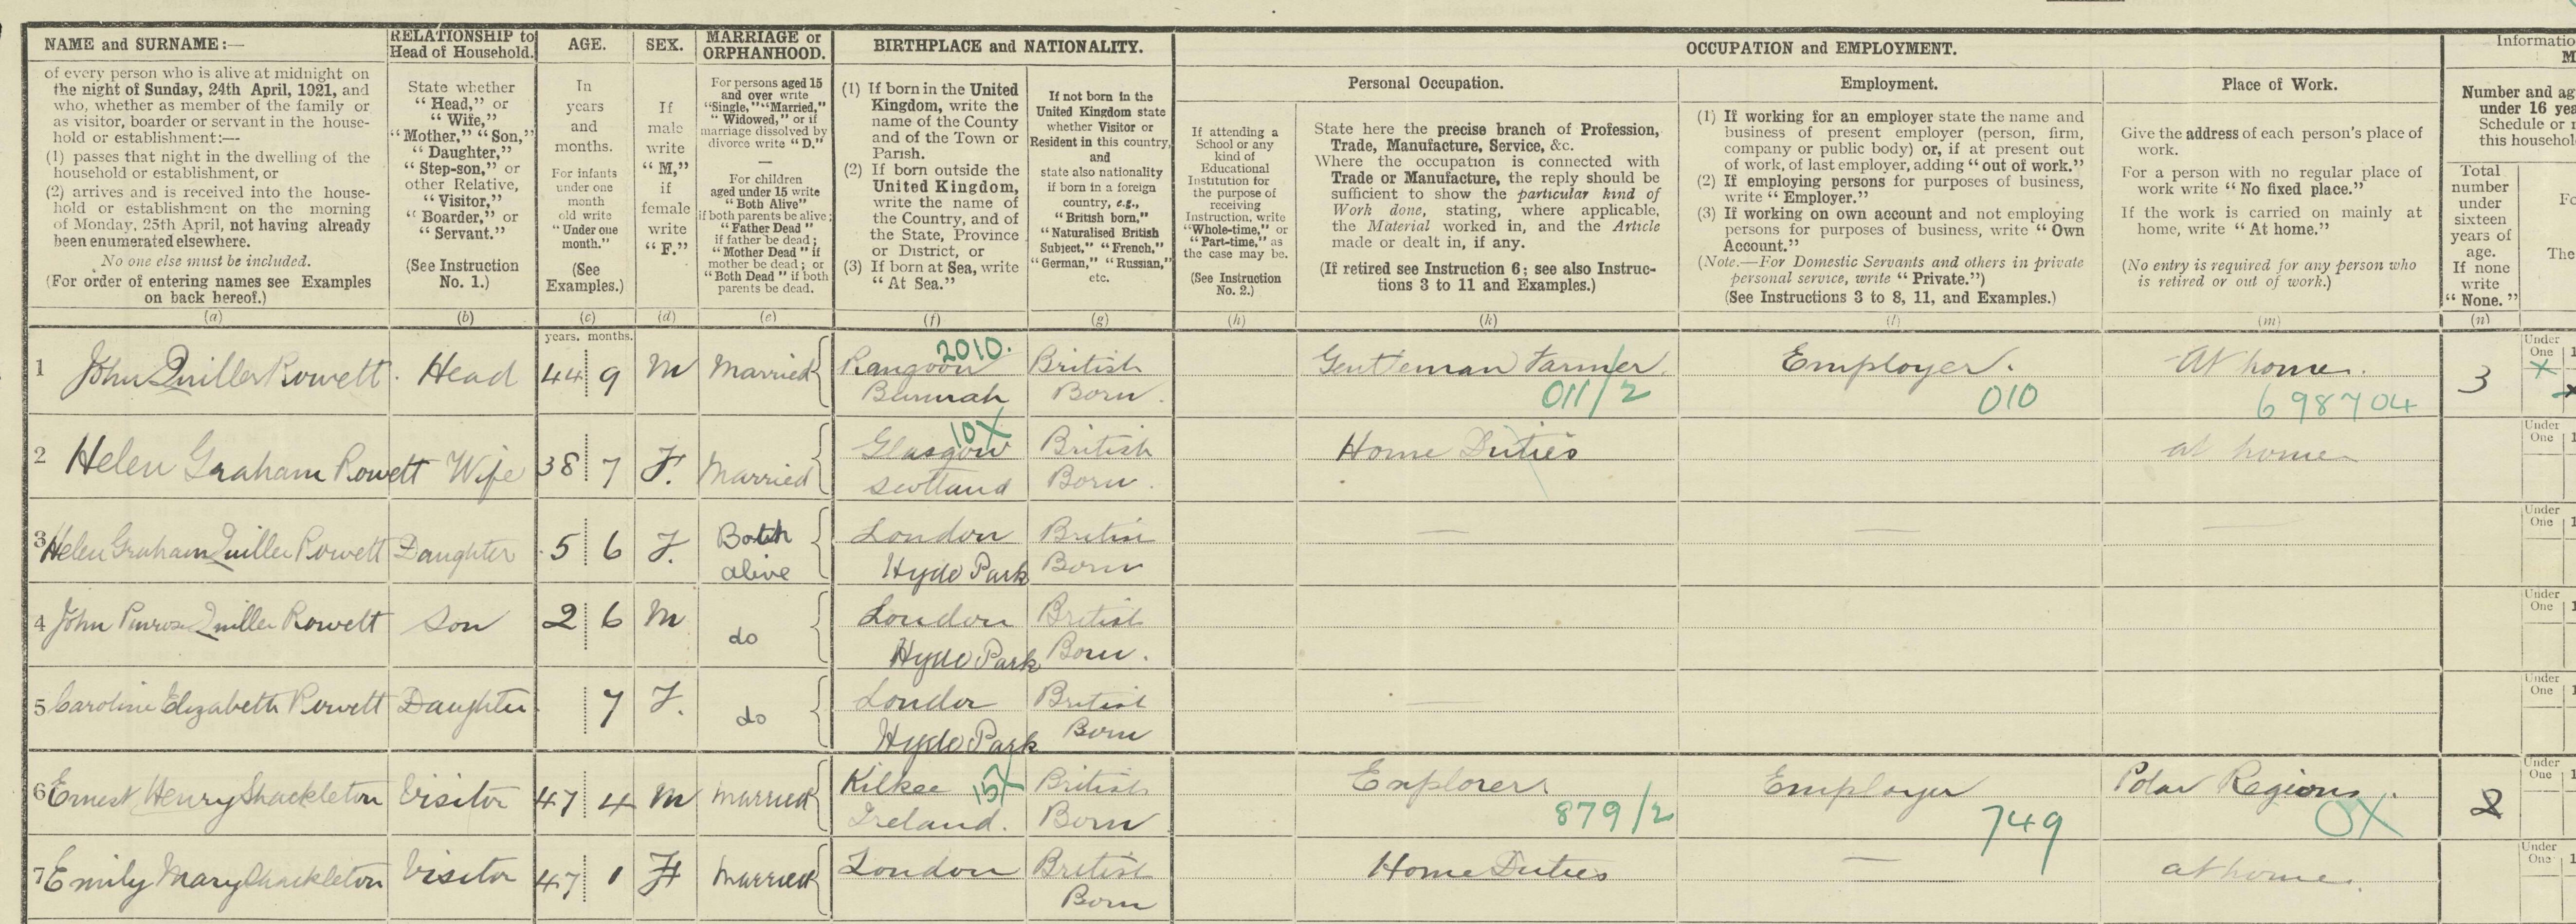 NAME and SURNAME:—
of every person who is alive at midnight on
the night of Sunday, 24th April, 1921, and
who, whether as member of the family or
as visitor, boarder or servant in the house-
hold or establishment:—
(1) passes that night in the dwelling of the
household or establishment, or
(2) arrives and is received into the house-
hold or establishment on the morning
of Monday, 25th April, not having already
been enumerated elsewhere.
No one else must be included.
(For order of entering names see Examples
on back hereof.)
(a)
RELATIONSHIP to
Head of Household.
State whether
"Head," or
"Wife,"
"Mother," "Son,"
"Daughter,"
"Step-son," or
other Relative,
"Visitor,"
"Boarder," or
"Servant."
(See Instruction
No. 1.)
(b)
AGE.
In
years
and
months.
For infants
under one
month
old write
"Under one
month."
(See
Examples.)
(c)
years. months.
SEX.
If
male
write
"M,"
if
female
write
"F."
(d)
MARRIAGE or
ORPHANHOOD.
For persons aged 15
and over write
"Single," "Married,"
"Widowed," or if
marriage dissolved by
divorce write "D."
—
For children
aged under 15 write
"Both Alive"
if both parents be alive;
"Father Dead"
if father be dead;
"Mother Dead" if
mother be dead; or
"Both Dead" if both
parents be dead.
(e)
BIRTHPLACE and NATIONALITY.
(1) If born in the United
Kingdom, write the
name of the County
and of the Town or
Parish.
(2) If born outside the
United Kingdom,
write the name of
the Country, and of
the State, Province
or District, or
(3) If born at Sea, write
"At Sea."
(f)
If not born in the
United Kingdom state
whether Visitor or
Resident in this country,
and
state also nationality
if born in a foreign
country, e.g.,
"British born,"
"Naturalised British
Subject," "French,"
"German," "Russian,"
etc.
(g)
OCCUPATION and EMPLOYMENT.
If attending a
School or any
kind of
Educational
Institution for
the purpose of
receiving
Instruction, write
"Whole-time," or
"Part-time," as
the case may be.
(See Instruction
No. 2.)
(h)
Personal Occupation.
State here the precise branch of Profession,
Trade, Manufacture, Service, &c.
Where the occupation is connected with
Trade or Manufacture, the reply should be
sufficient to show the particular kind of
Work done, stating, where applicable,
the Material worked in, and the Article
made or dealt in, if any.
(If retired see Instruction 6; see also Instruc-
tions 3 to 11 and Examples.)
(k)
Employment.
(1) If working for an employer state the name and
business of present employer (person, firm,
company or public body) or, if at present out
of work, of last employer, adding "out of work."
(2) If employing persons for purposes of business,
write "Employer."
(3) If working on own account and not employing
persons for purposes of business, write "Own
Account."
(Note.—For Domestic Servants and others in private
personal service, write "Private.")
(See Instructions 3 to 8, 11, and Examples.)
(l)
Place of Work.
Give the address of each person's place of
work.
For a person with no regular place of
work write "No fixed place."
If the work is carried on mainly at
home, write "At home."
(No entry is required for any person who
is retired or out of work.)
(m)
Informatio
M
Number and ag
under 16 yea
Schedule or
this househol
Total
number
under
sixteen
years of
age.
If none
write
"None."
(n)
Fo
The
1 John Quiller Rowett. Head 44 9 M Married Rangoon 2010. British Gentleman Farmer. Employer. At home. 3 Under One 1
Burmah Born. 011/2 010 698704
2 Helen Graham Rowett Wife 38 7 F. Married Glasgow 10X British Home Duties at home Under One 1
Scotland Born.
3 Helen Graham Quiller Rowett Daughter 5 6 F. Both London British — — — Under One 1
alive Hyde Park Born
4 John Quiller Rowett Son 2 6 M do London British Under One 1
Hyde Park Born.
5 Caroline Elizabeth Rowett Daughter 7 F. do London British — Under One 1
Hyde Park Born
6 Ernest Henry Shackleton Visitor 47 4 M Married Kilkee 15X British Explorer. Employer Polar Regions. 2 Under One 1
Ireland. Born 879/2 749 OX
7 Emily Mary Shackleton Visitor 47 1 F Married London British Home Duties — at home. Under One 1
Born